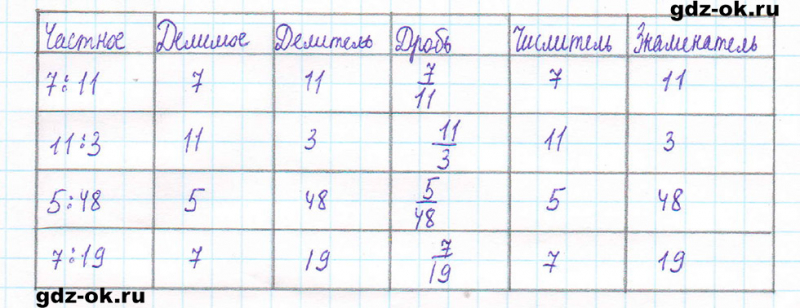 gdz-ok.ru
Частное Делимое Делитель Дробь Числитель Знаменатель
7:11 7 11 7/11 7 11
11:3 11 3 11/3 11 3
5:48 5 48 5/48 5 48
7:19 7 19 7/19 7 19
gdz-ok.ru